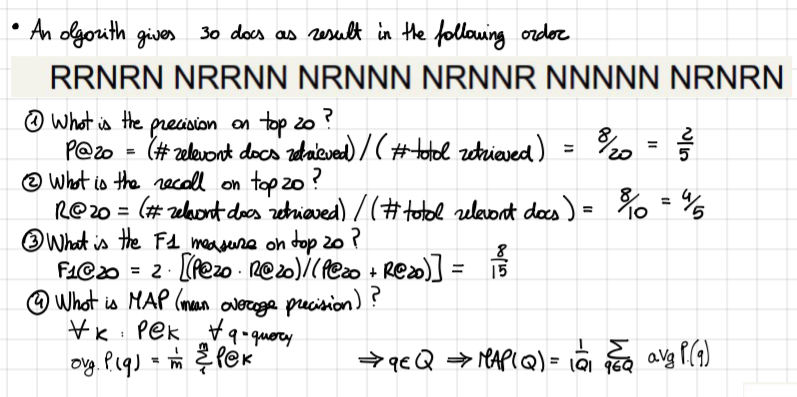 • An algorith gives 30 docs as result in the following order
RRNRN NRRNN NRNNN NRNNR NNNNN NRNRN
① What is the precision on top 20?
P@20 = (# relevant docs retrieved) / (# total retrieved) = 8/20 = 2/5
② What is the recall on top 20?
R@20 = (# relevant docs retrieved) / (# total relevant docs) = 8/10 = 4/5
③ What is the F1 measure on top 20?
F1@20 = 2 · [(P@20 · R@20)/(P@20 + R@20)] = 8/15
④ What is MAP (mean average precision)?
∀ K : P@K ∀ q-query
avg. P.(q) = 1/m Σ P@K ⇒ q∈Q ⇒ MAP(Q) = 1/|Q| Σ q∈Q avg P.(q)